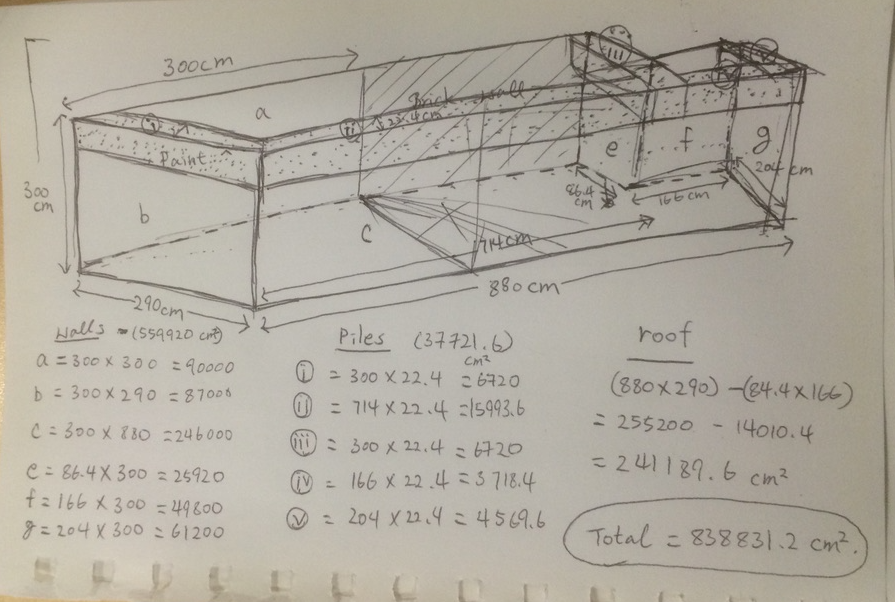 300cm
iii
v
a
Brick wall
i
ii
22.4cm
iv
Paint
e
f
g
204 cm
300
cm
b
86.4
cm
166 cm
c
714cm
880cm
290cm
Walls = (559920 cm²)
a = 300 × 300 = 90000
b = 300 × 290 = 87000
c = 300 × 880 = 246000
e = 86.4 × 300 = 25920
f = 166 × 300 = 49800
g = 204 × 300 = 61200
Piles (37721.6)
cm²
i = 300 × 22.4 = 6720
ii = 714 × 22.4 = 15993.6
iii = 300 × 22.4 = 6720
iv = 166 × 22.4 = 3718.4
v = 204 × 22.4 = 4569.6
roof
(880 × 290) - (84.4 × 166)
= 255200 - 14010.4
= 241189.6 cm²
Total = 838831.2 cm².